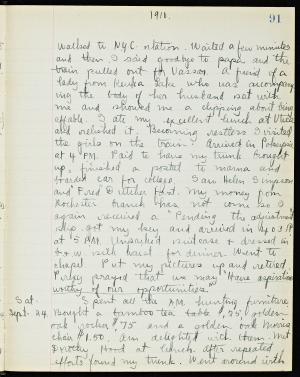 1910.
91
walked to N.Y.C. station. Waited a few minutes
and then I said goodbye to papa and the
train pulled out for Vassar. A friend of a
lady from Keuka Lake who was accompany-
ing the body of her husband sat with
me and showed me a clipping about being
affable. I ate my excellent lunch at Utica
and relished it. Becoming restless I visited
the girls on the train. Arrived in Pokeepsie
at 4 P.M. Paid to have my trunk brought
up, finished a postal to mama and
boarded car for college. Saw Helen Simpson
and Fred Dutcher first. My money from
Rochester branch has not come so I
again received a "Pending the adjustment"
slip. Got my key and arrived in
at 5 P.M. Unpacked suitcase & dressed in
b & w silk waist for dinner. Went to
chapel. Put my pictures up and retired.
Prexy prayed that we may "Have aspirations
worthy of our opportunities."
Sat. Spent all the AM hunting furniture.
Sept. 24. Bought a bamboo tea table $.75 golden
oak rocher $.75 and a golden oak Morris
chair $1.50. Am delighted with them. Met
Dorothy Hood at lunch. After repeated
efforts found my trunk. Went around with